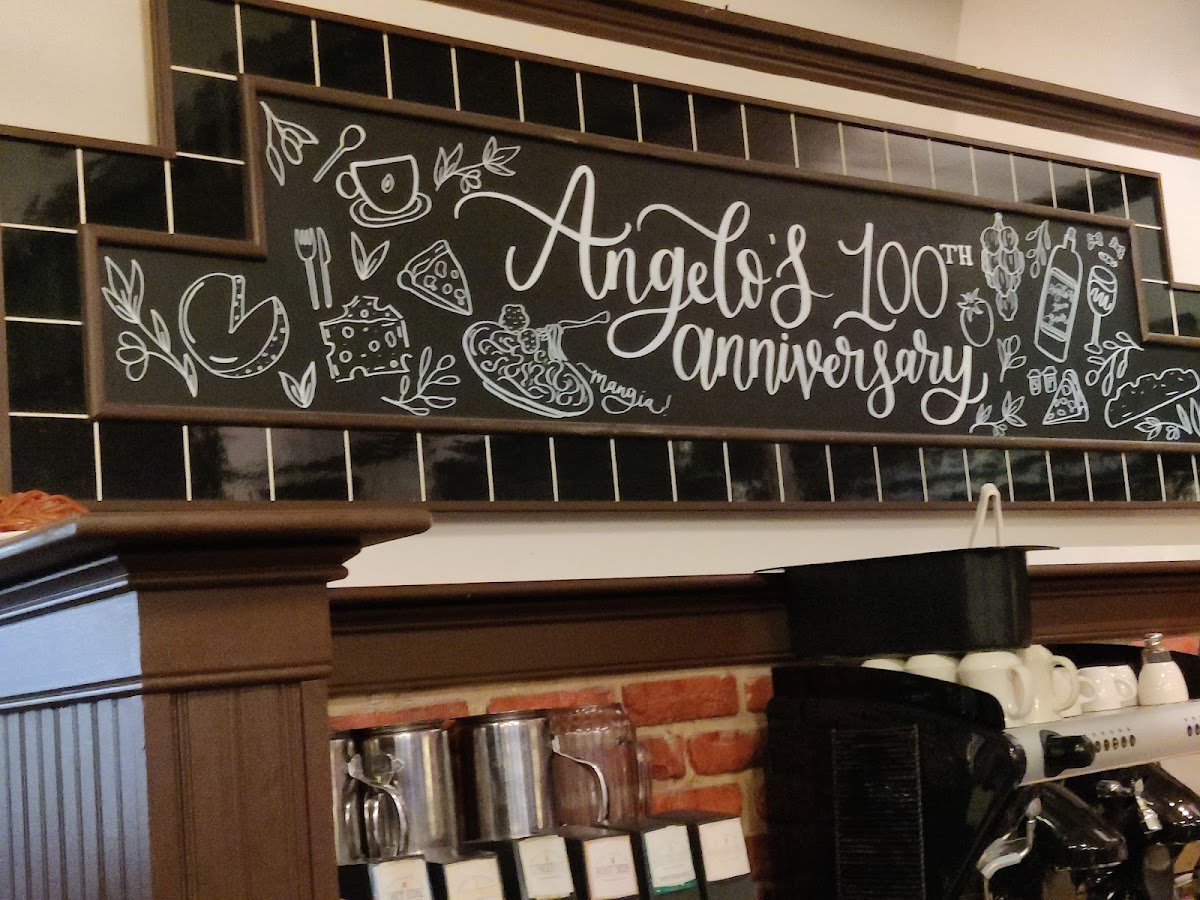 Angelo's 100TH
anniversary
mangia!